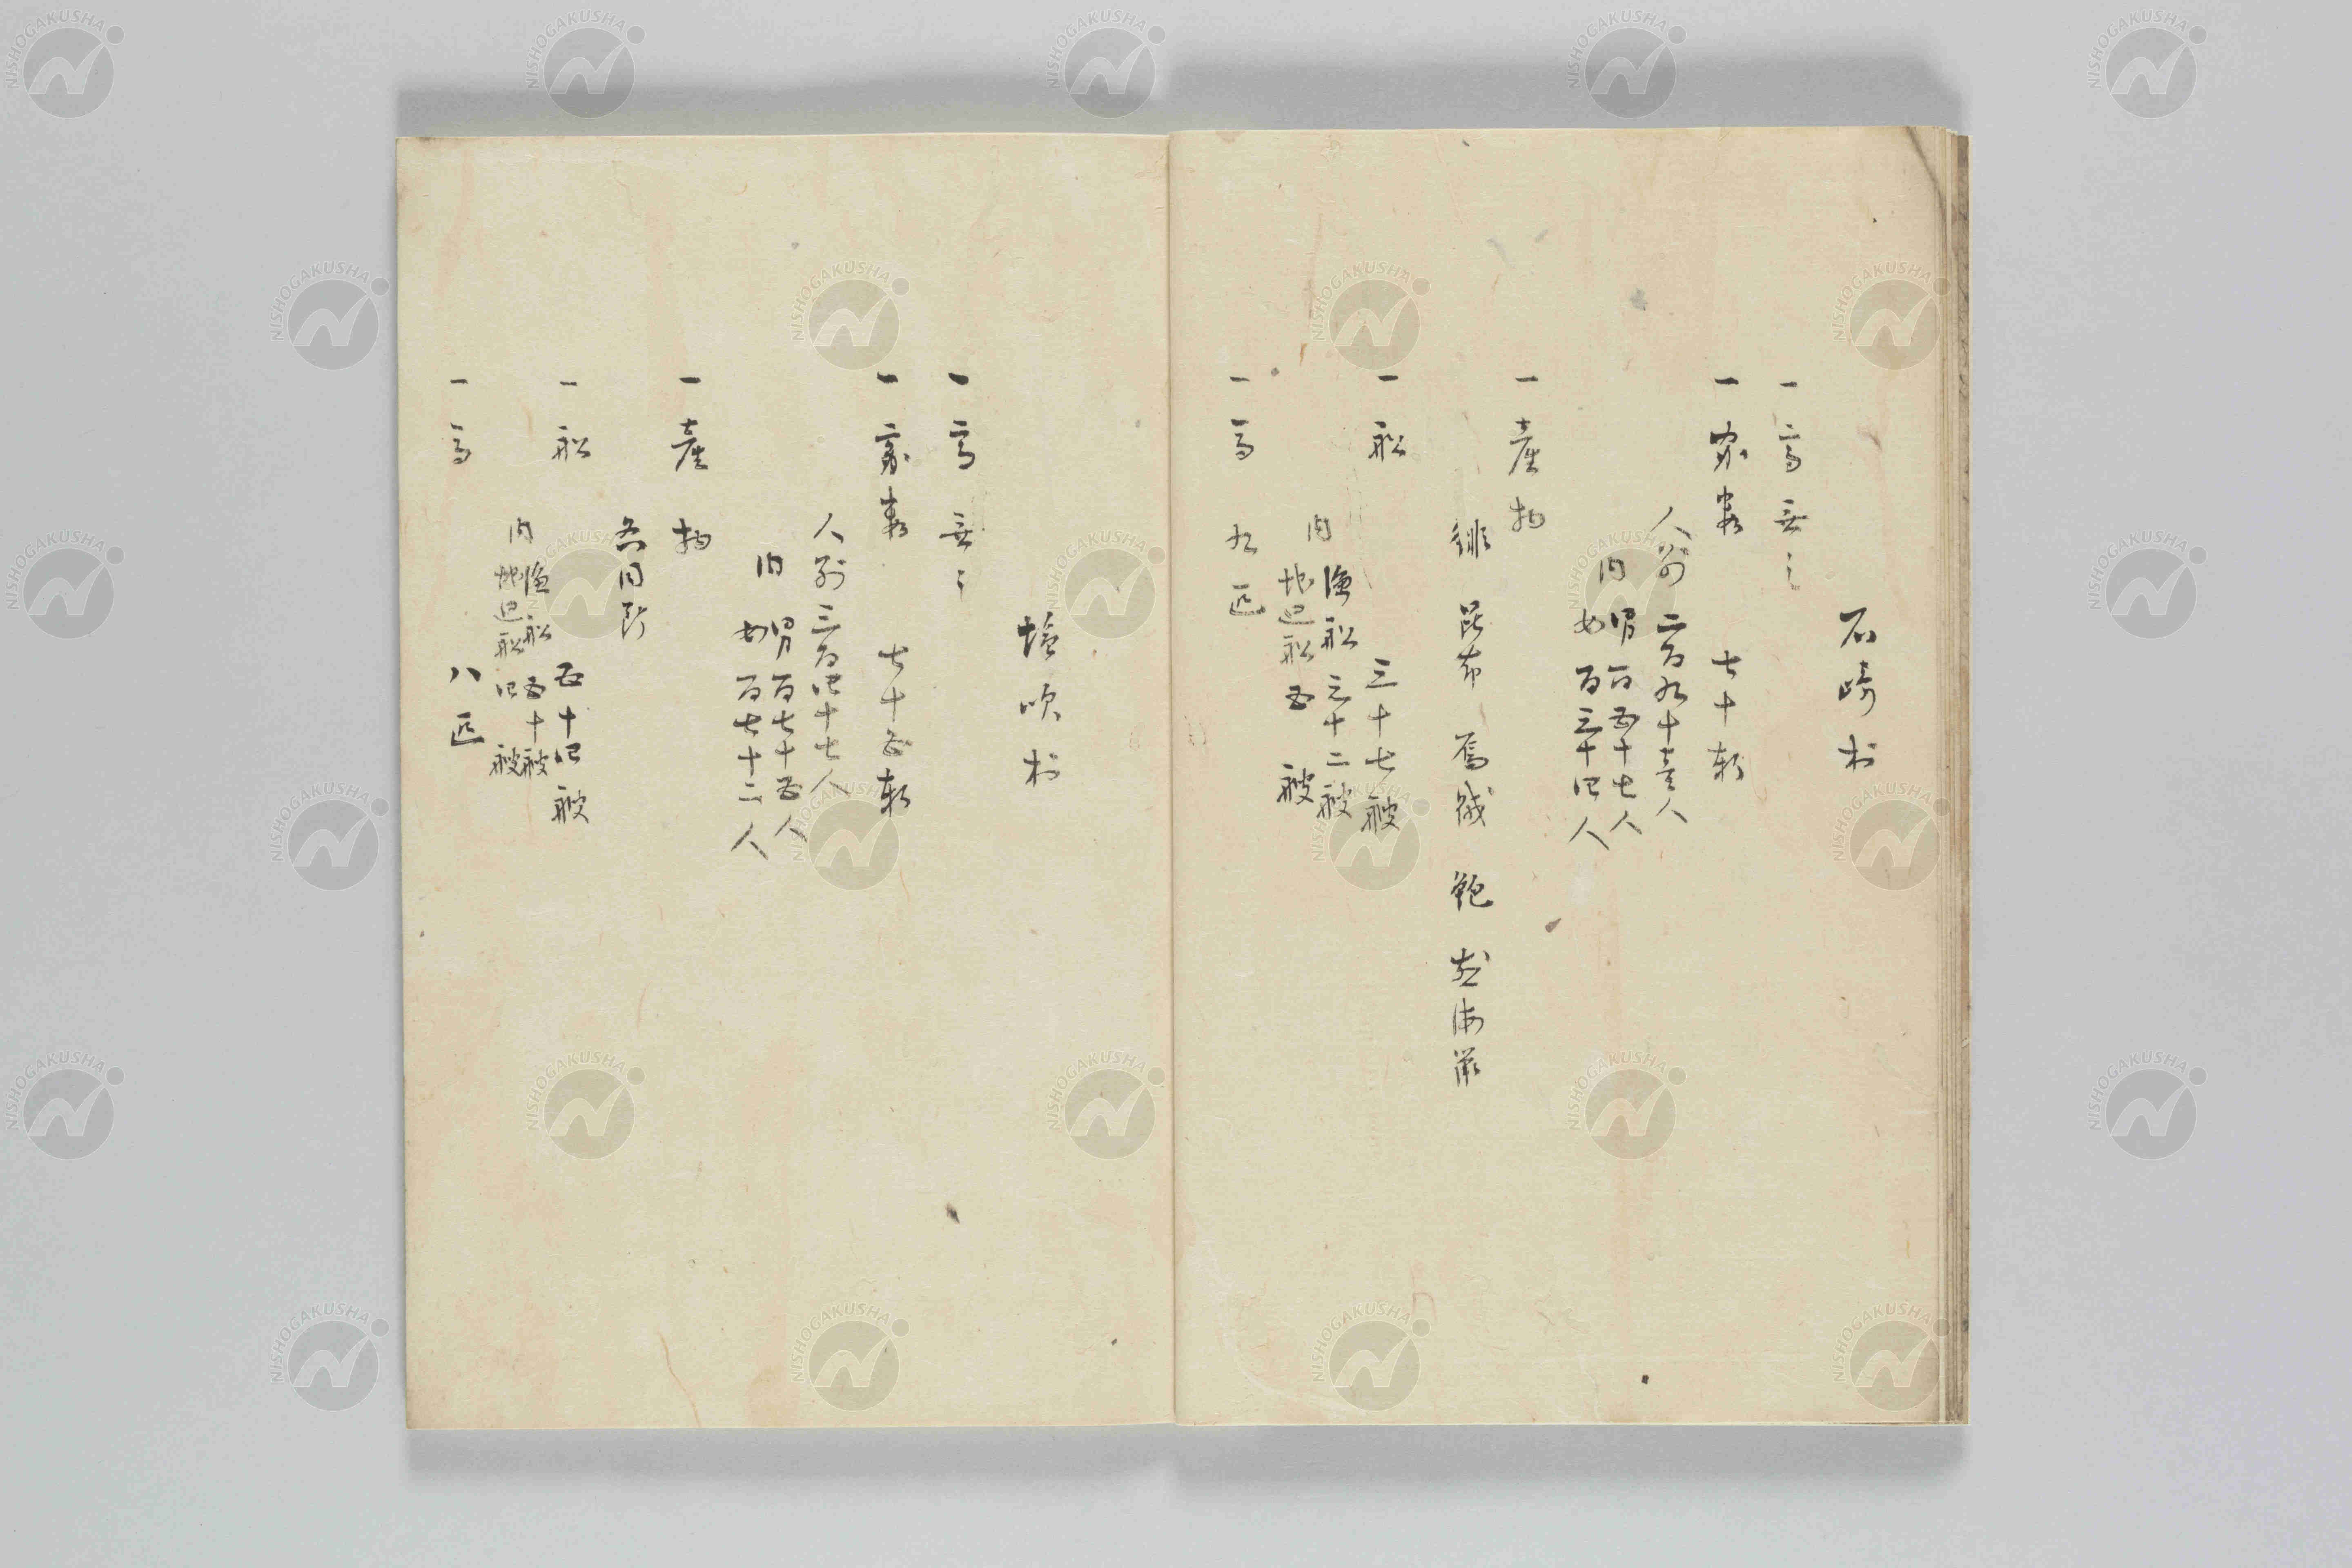 石崎村
一高無之
一家数 七十軒
人別 二百九十壱人
内 男百五十七人
女百三十四人
一産物
鯡 昆布 鮑 海鼠
一船 三十七艘
内 漁船三十二艘
地廻船五艘
一馬 九疋
塩吹村
一高無之
一家数 七十五軒
人別三百四十七人
内 男百七十五人
女百七十二人
一産物
右同断
一船 五十四艘
内 漁船五十艘
地廻船四艘
一馬 八疋
NISHOGAKUSHA